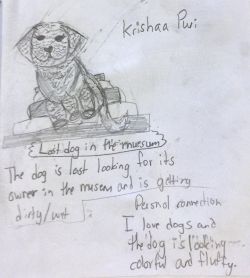 Krishaa Puri
Lost dog in the museum
The dog is lost looking for its
owner in the museam and is getting
dirty/wet
Personal connection
I love dogs and
the dog is looking
colorful and fluffy.